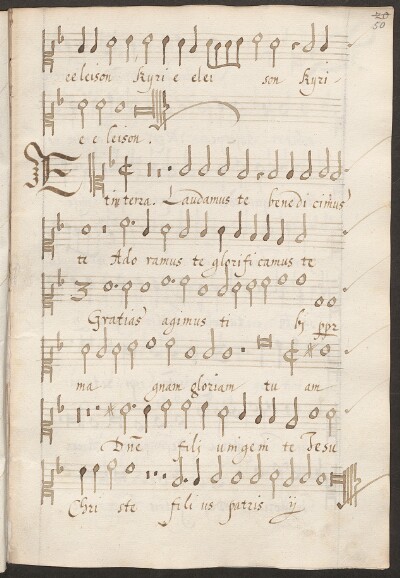 50
eeleison Kyri e elei son Kyri
e e leison.
Et in terra. Laudamus te benedicimus
te Ado ramus te glorificamus te
Gratias agimus ti bj ppr
ma gnam gloriam tu am
Dne fili unigeni te Jesu
Chri ste fili us patris ij